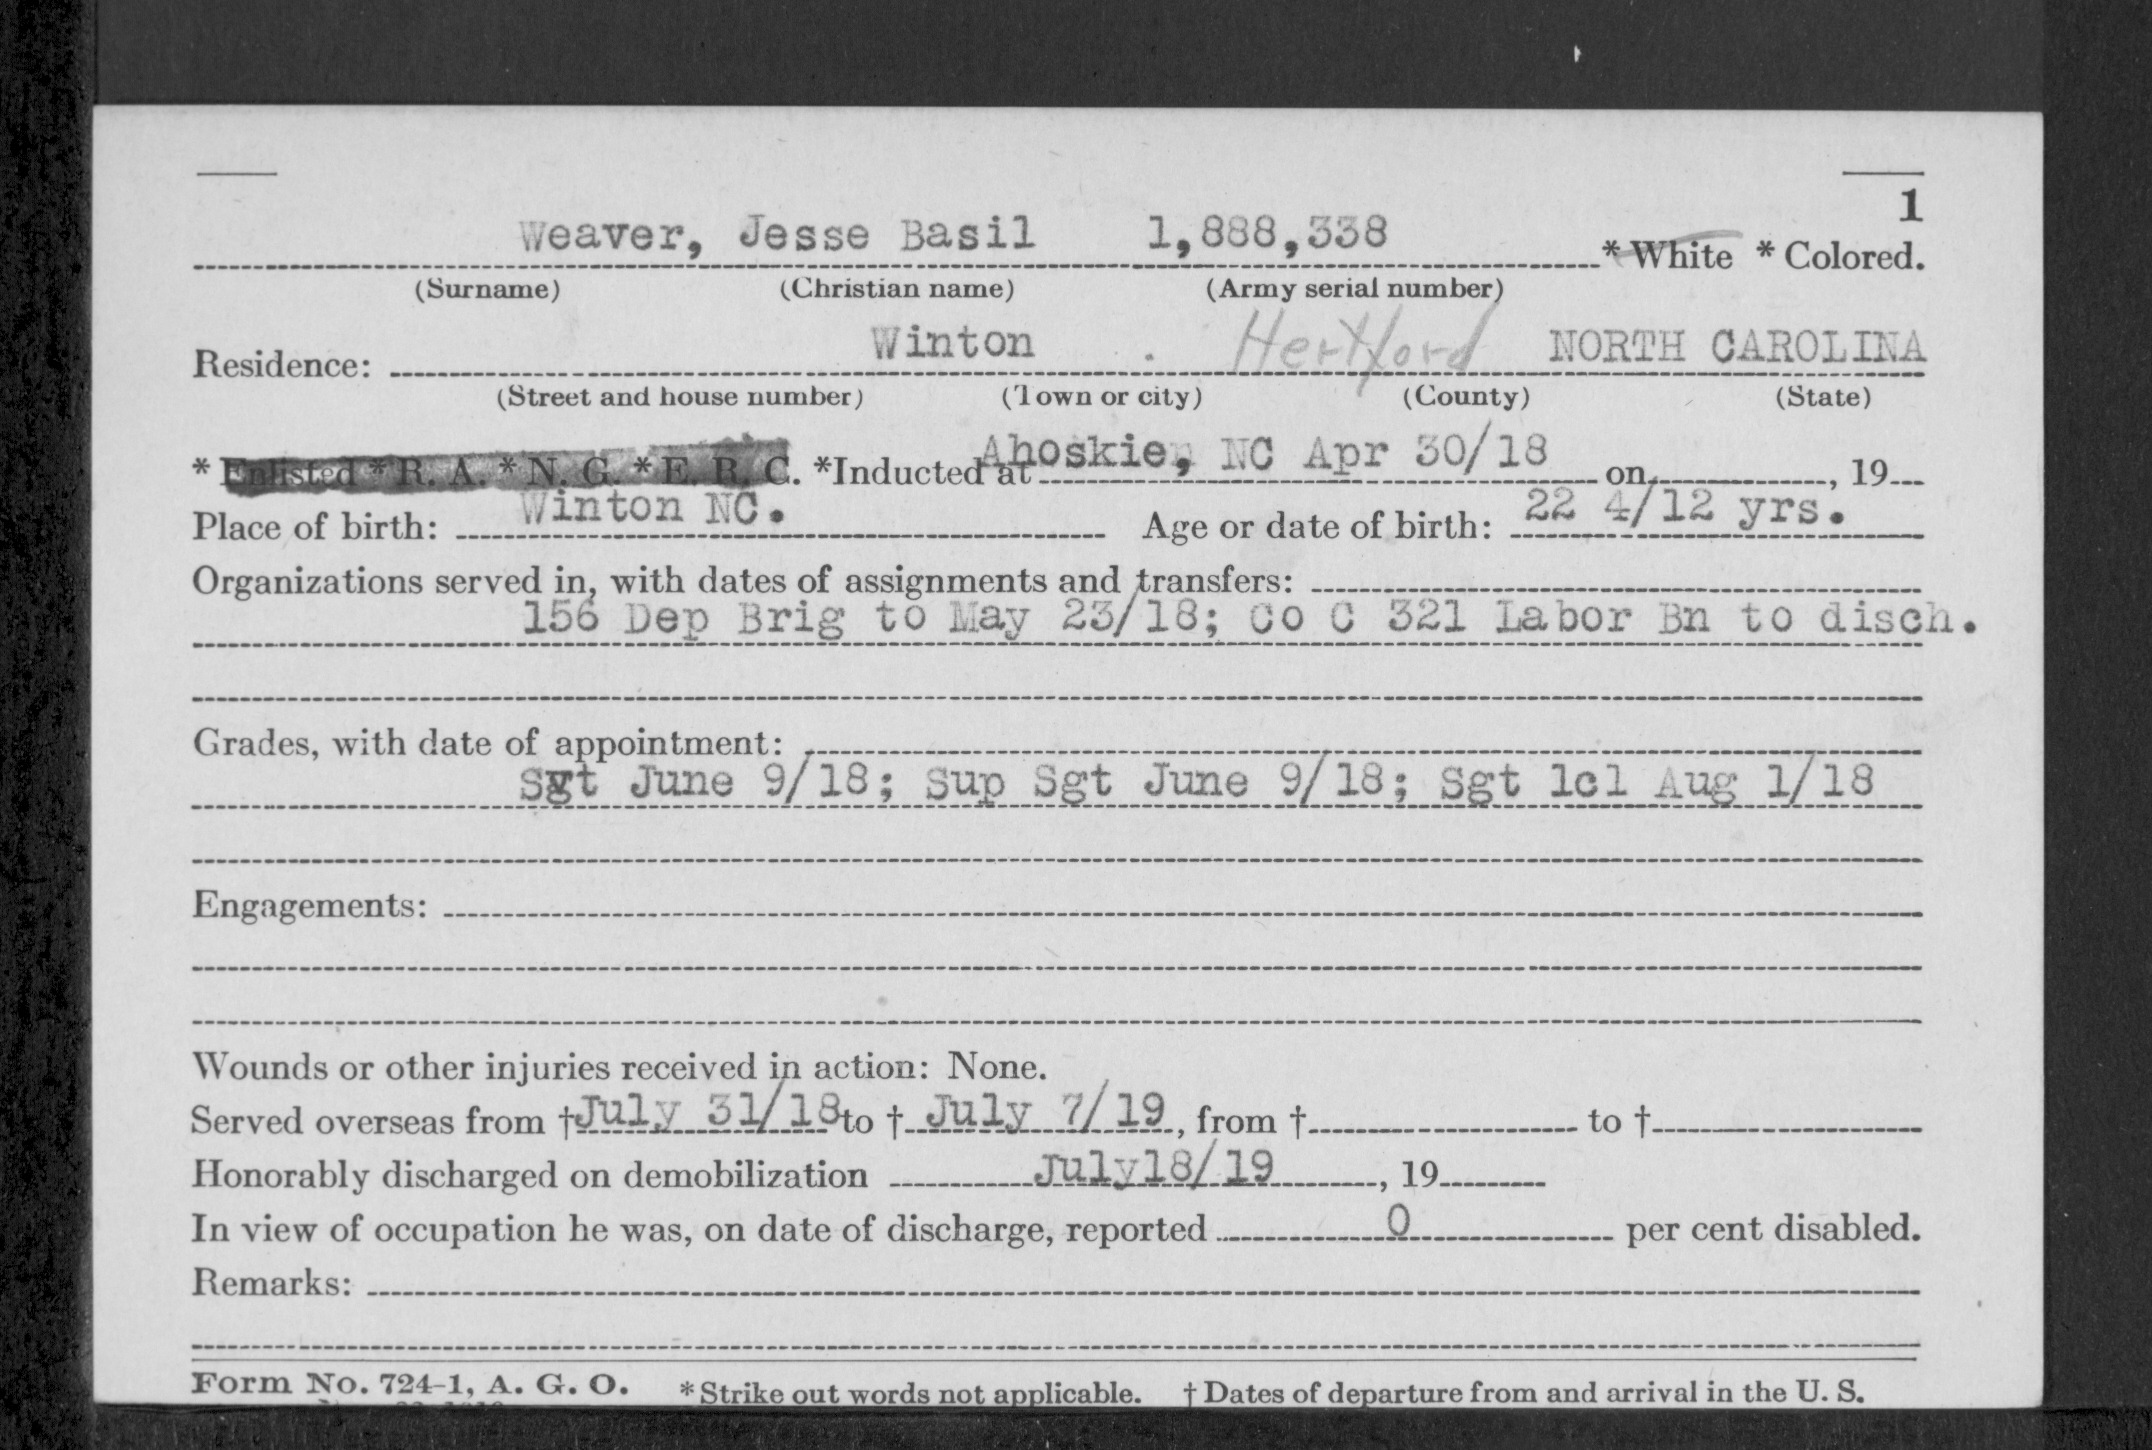 1
Weaver, Jesse Basil 1,888,338 * White * Colored.
(Surname) (Christian name) (Army serial number)
Residence: Winton . Hertford NORTH CAROLINA
(Street and house number) (Town or city) (County) (State)
* Enlisted * R. A. * N. G. * E. R. C. *Inducted at Ahoskie, NC Apr 30/18 on , 19
Place of birth: Winton NC. Age or date of birth: 22 4/12 yrs.
Organizations served in, with dates of assignments and transfers:
156 Dep Brig to May 23/18; Co C 321 Labor Bn to disch.
Grades, with date of appointment:
Sgt June 9/18; Sup Sgt June 9/18; Sgt 1cl Aug 1/18
Engagements:
Wounds or other injuries received in action: None.
Served overseas from † July 31/18 to † July 7/19, from † to †
Honorably discharged on demobilization July18/19 , 19
In view of occupation he was, on date of discharge, reported 0 per cent disabled.
Remarks:
Form No. 724-1, A. G. O. * Strike out words not applicable. † Dates of departure from and arrival in the U. S.